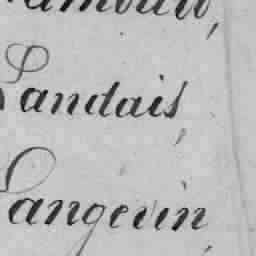 Landais,
Langevin,